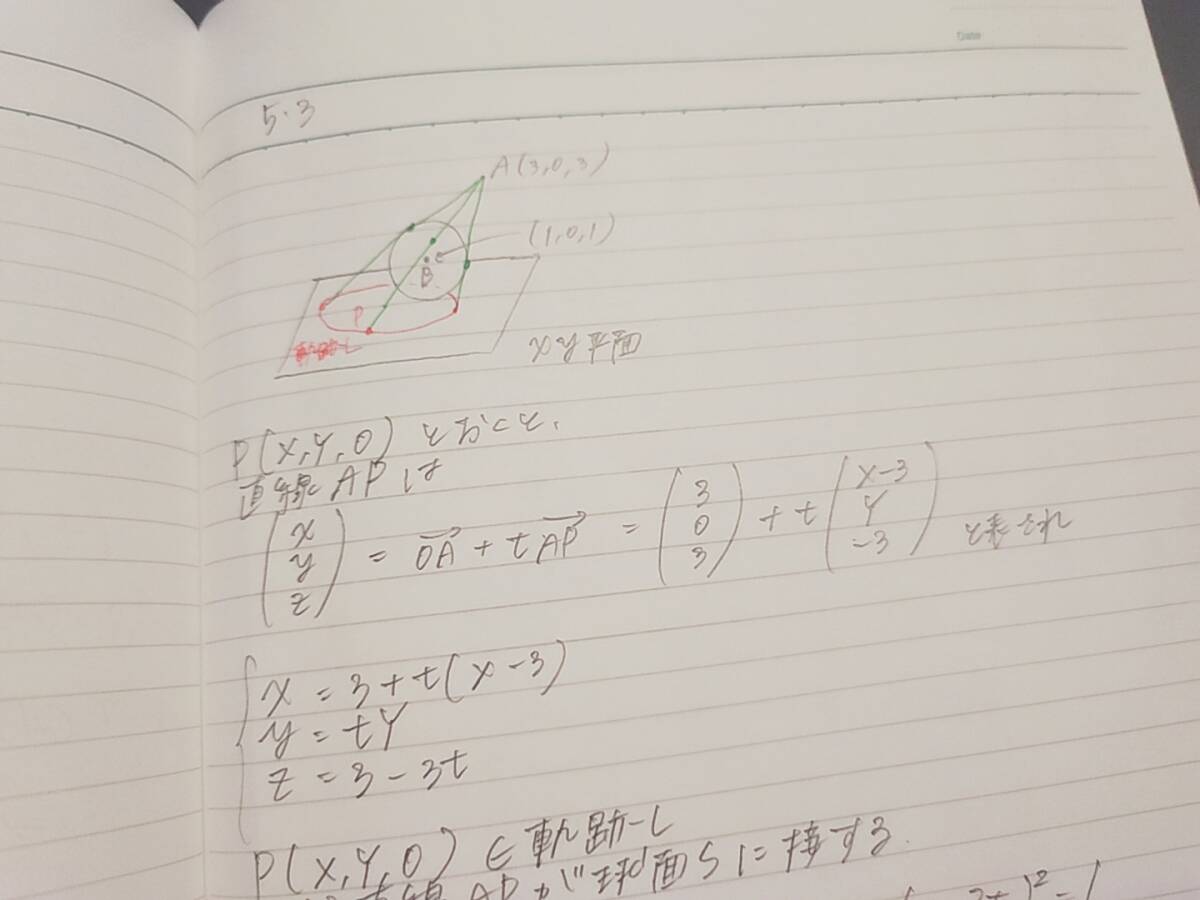 Date
5・3
A(3,0,3)
(1,0,1)
B
P
軌跡L
xy平面
P(X,Y,0) とおくと、
直線APは
(x y z) = OA + tAP = (3 0 3) + t(X-3 Y -3) と表され
x = 3 + t(X-3)
y = tY
z = 3 - 3t
P(X,Y,0) ∈ 軌跡L
直線APが球面Sに接する
)² = 1